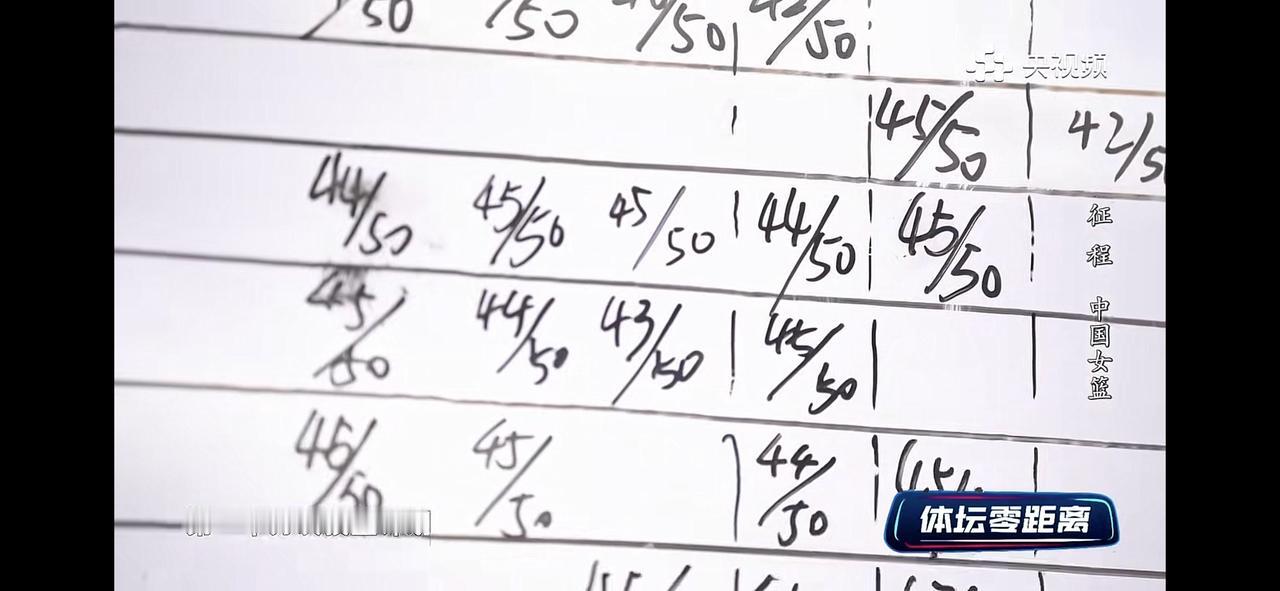 /50 /50 /50 42/50
央视频
45/50 42/5
44/50 45/50 45/50 44/50 45/50
征程 中国女篮
45/50 44/50 43/50 45/50
46/50 45/50 44/50 45/
体坛零距离